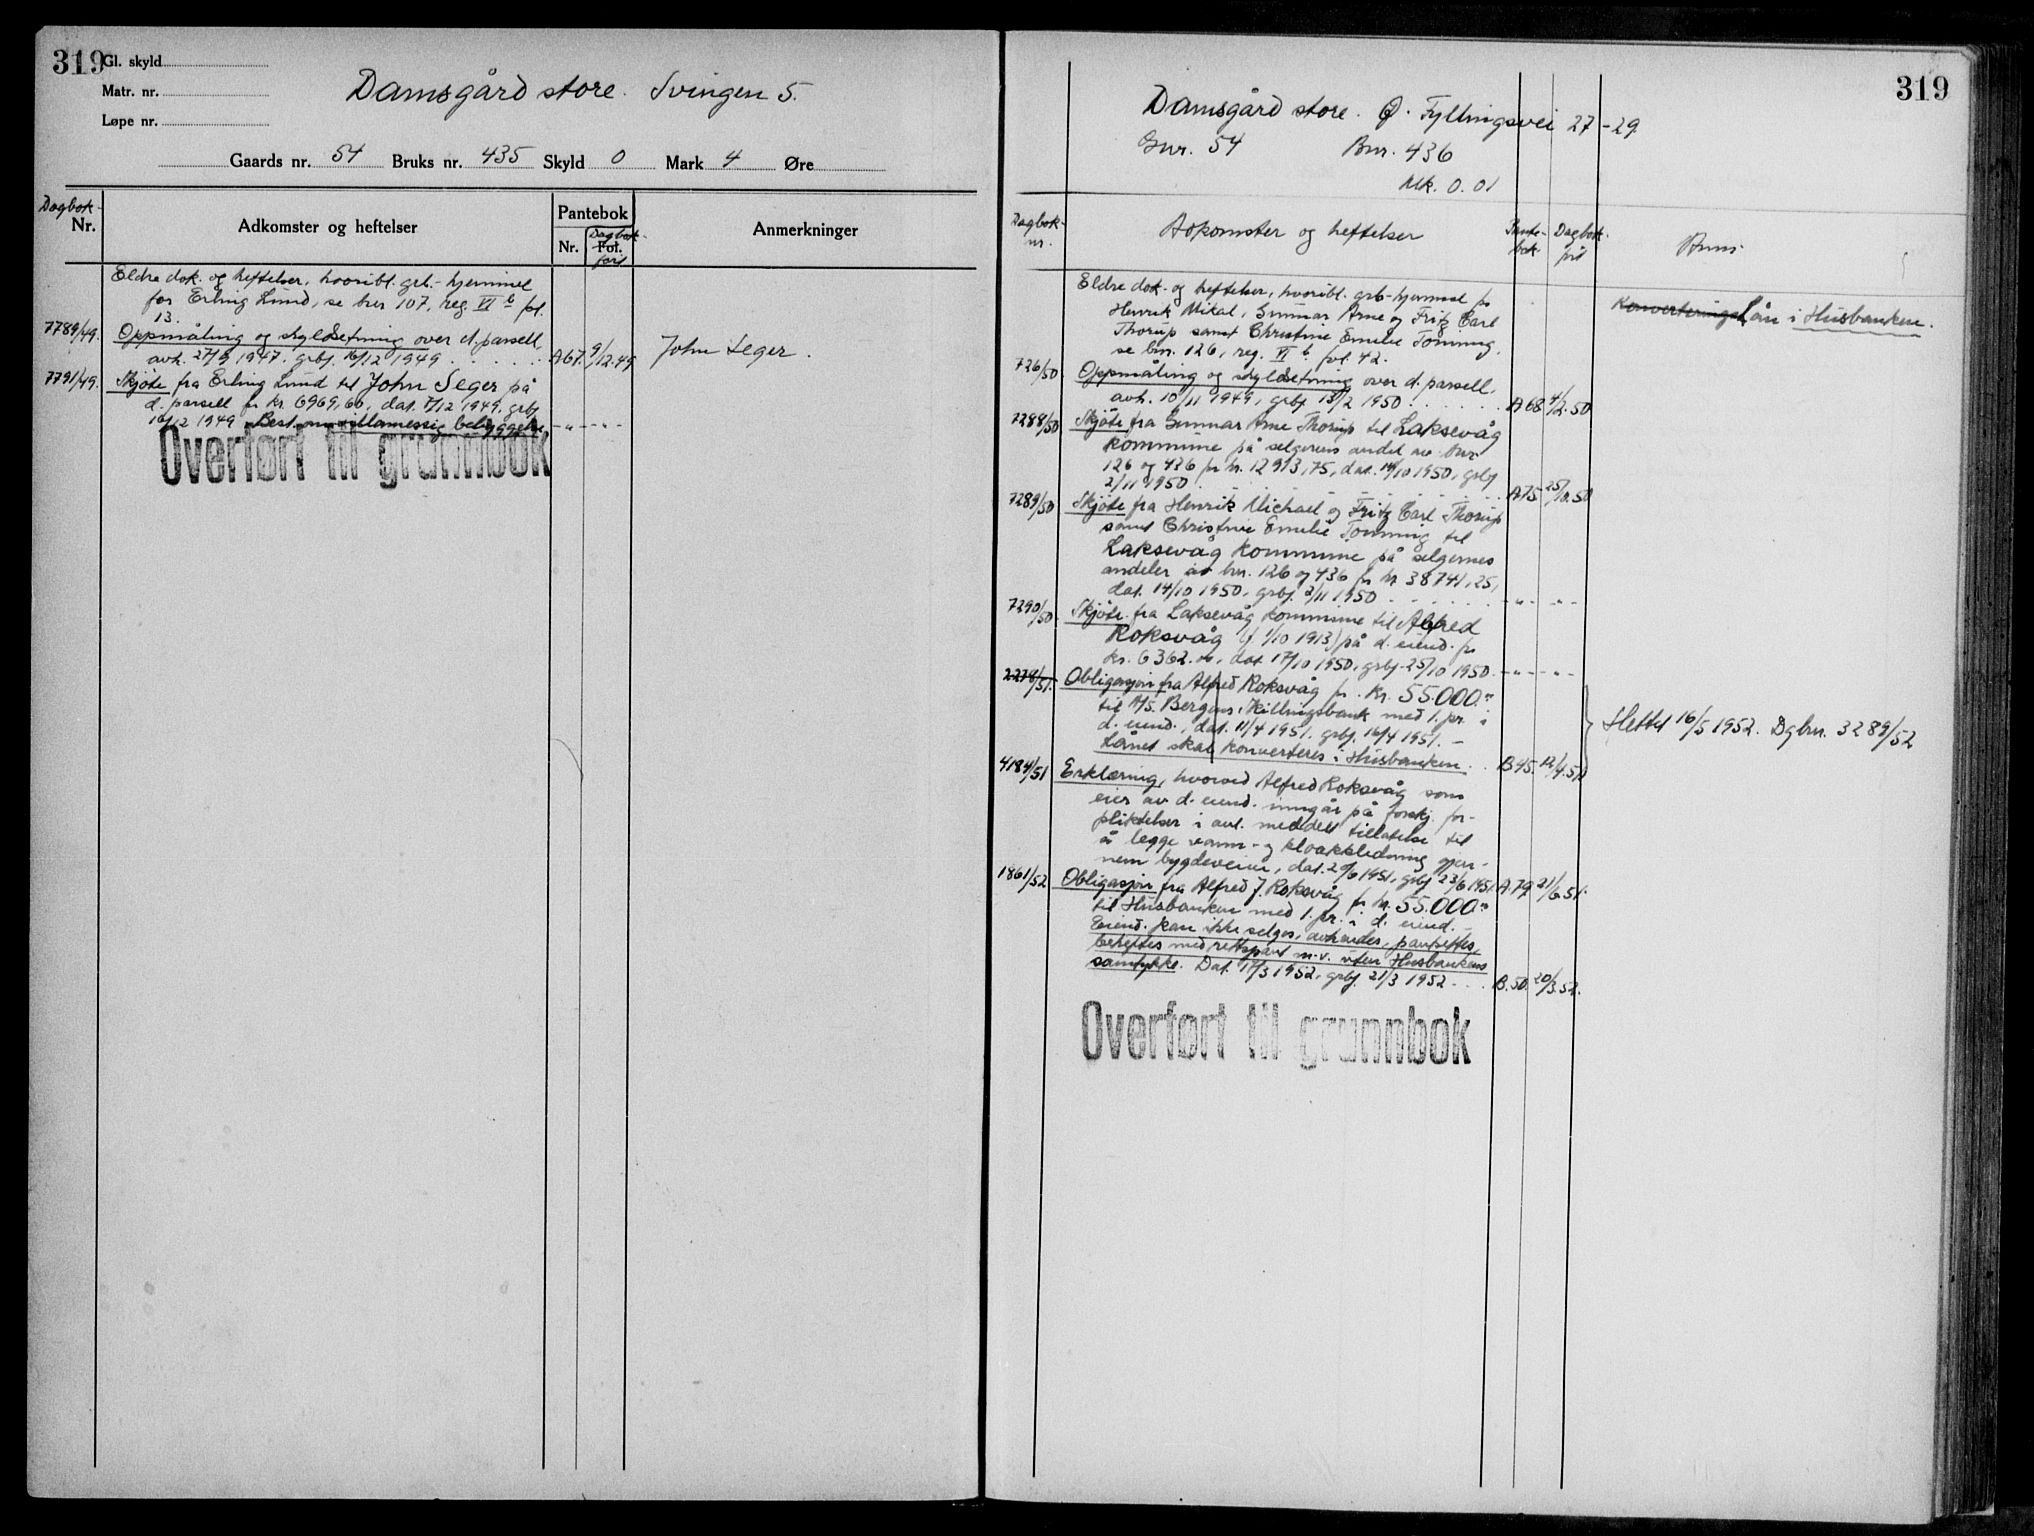 319
Gl. skyld
Matr. nr.
Løpe nr.
Damsgård store. Svingen 5.
Gaards nr. 54 Bruks nr. 435 Skyld 0 Mark 4 Øre
Dagbok-
Nr.
Adkomster og heftelser
Pantebok
Nr.
Dagbok-
Fol.
ført
Anmerkninger
Eldre dok. og heftelser, hvoriblt. grb.-hjemmel
for Erling Lund, se bnr 107, reg. VI b fol.
13.
7789/49. Oppmåling og skyldsetning over d. parsell
avh. 27/9 1947. grbf 16/12 1949 A67. 9/12.49 John Seger.
7791/49. Skjøte fra Erling Lund til John Seger på
d. parsell for kr. 6969,60, dat. 7/12 1949. grbf
16/12 1949 Best. om villamessig bebyggelse -"- -"-
Overført til grunnbok
319
Damsgård store. Ø. Fyllingsvei 27-29
Gnr. 54 Bnr. 436
Mk. 0.01
Dagbok-
nr.
Adkomster og heftelser
Pante-
bok
Dagbok-
ført
Anm.
Eldre dok. og heftelser, hvoriblt. grb-hjemmel for
Henrik Mikal, Gunnar Arne og Fritz Carl
Thorup samt Christine Emilie Tonning,
se bnr. 126, reg. VI b fol. 42.
Konverterings Lån i Husbanken.
726/50 Oppmåling og skyldsetning over d. parsell,
avh. 10/11 1949, grbf 13/2 1950 A68 4/2.50
7288/50 Skjøte fra Gunnar Arne Thorup til Laksevåg
kommune på selgerens andel av bnr.
126 og 436 for kr. 12913,75, dat. 14/10 1950, grbf
2/11 1950 A75 25/10.50
7289/50 Skjøte fra Henrik Michael og Fritz Carl Thorup
samt Christine Emilie Tonning til
Laksevåg kommune på selgernes
andeler av bnr. 126 og 436 for kr 38741,25,
dat. 14/10 1950, grbf. 2/11 1950 -"- -"-
7290/50 Skjøte fra Laksevåg kommune til Alfred
Roksvåg (f. 1/10 1913) på d. eiend. for
kr. 6362.00, dat 17/10 1950, grbf. 25/10 1950 -"- -"-
2278/51. Obligasjon fra Alfred Roksvåg for kr. 55.000.-
til A/S. Bergens Skillingsbank med 1. pr. i
d. eiend., dat. 11/4 1951. grbf. 16/4 1951. -
Lånet skal konverteres i Husbanken B45. 12/4.51
Slettet 16/5 1952. Dgbnr. 3289/52
4184/51 Erklæring, hvorved Alfred Roksvåg som
eier av d. eiend. inngår på forskj. for-
pliktelser i anl. meddelt tillatelse til
å legge vann- og kloakkledning gjen-
nem bygdeveien, dat. 20/6 1951, grbf 23/6 1951 A.79 21/6.51.
1861/52 Obligasjon fra Alfred J. Roksvåg for kr. 55.000.-
til Husbanken med 1. pr. i d. eiend. -
Eiend. kan ikke selges, avhendes, pantsettes,
beheftes med rettspant m.v. uten Husbankens
samtykke. Dat. 17/3 1952, grbf. 21/3 1952 B.50. 20/3.52.
Overført til grunnbok